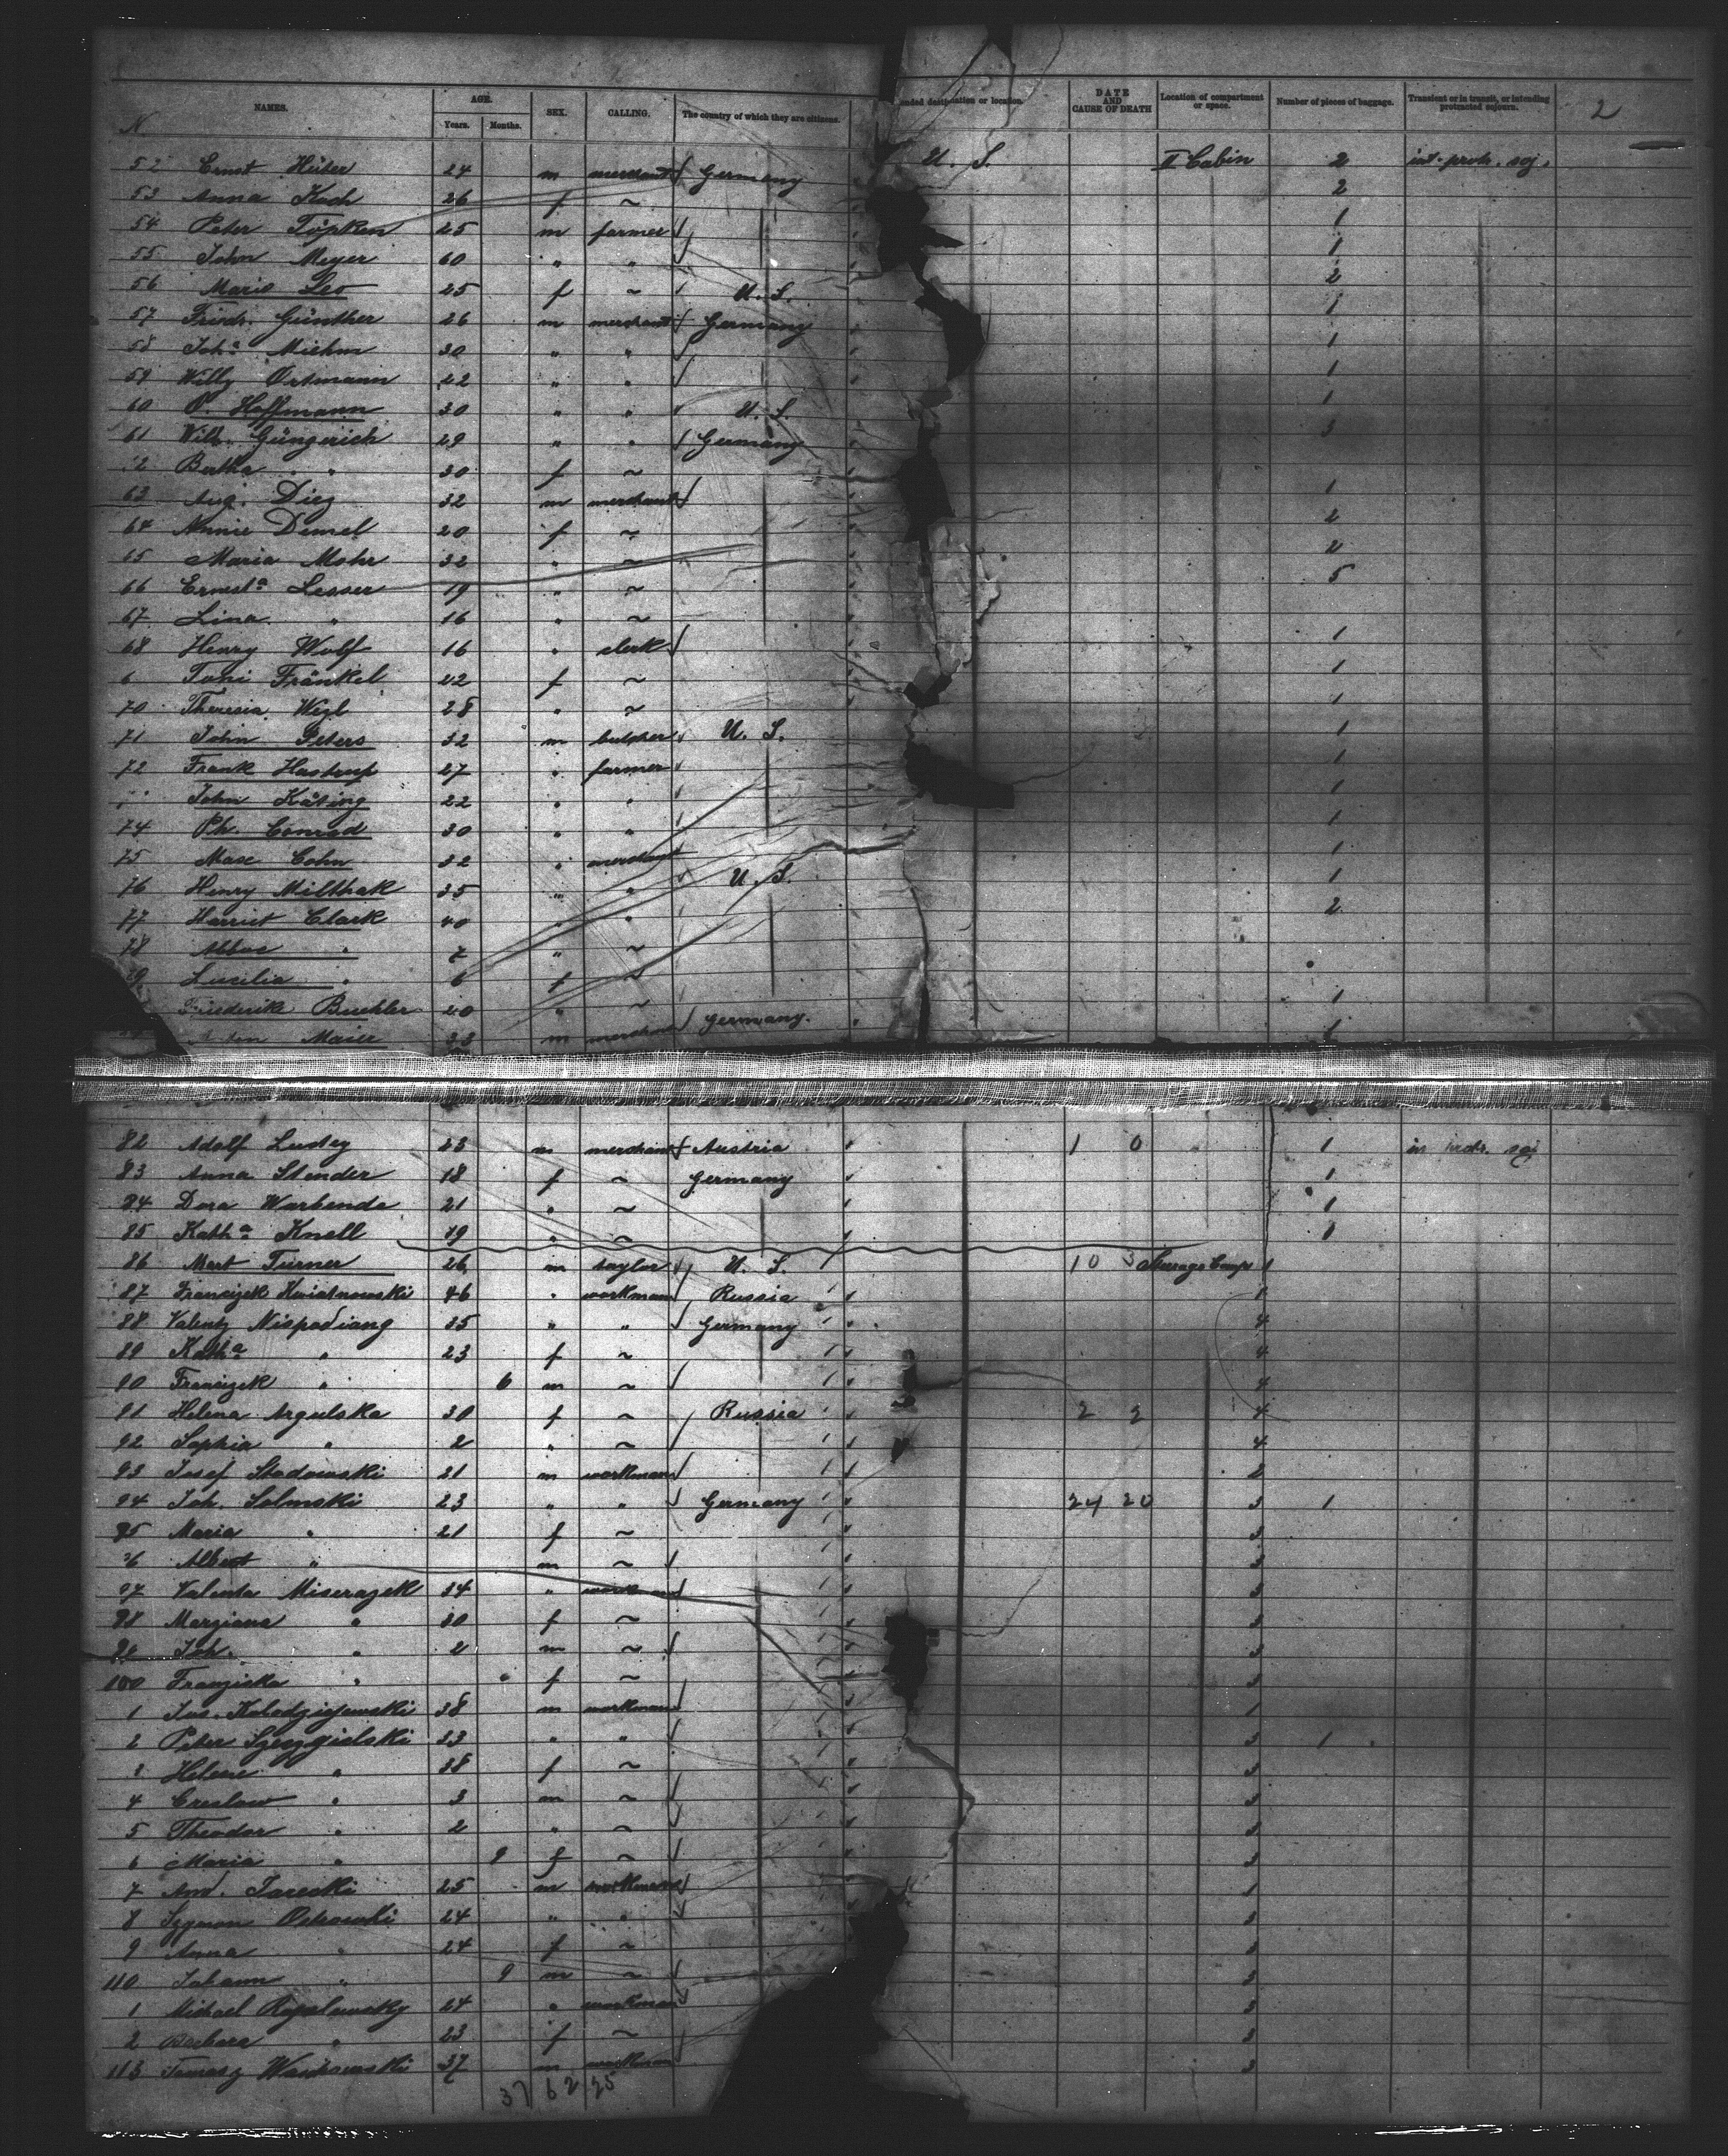 NAMES. AGE. Years. Months. SEX. CALLING. The country of which they are citizens. ended destination or location DATE AND CAUSE OF DEATH Location of compartment or space. Number of pieces of baggage. Transient or in transit, or intending protracted sojourn. 2
52 Ernst Hüter 24 m merchant Germany U. S. II Cabin 2 int. protr. soj.
53 Anna Koch 26 f ~ 2
54 Peter Töpken 25 m farmer 1
55 John Meyer 60 " " 1
56 Marie Leo 25 f ~ U. S. 2
57 Friedr. Günther 26 m merchant Germany 1
58 Joh.s Miehm 30 " " 1
59 Willy Ortmann 22 " " 1
60 O. Hoffmann 30 " " U. S. 1
61 Wilh. Güngerich 29 " " Germany 3
Bertha " 30 f ~
63 Aug. Diez 32 m merchant 1
64 Annie Demel 20 f ~ 2
65 Maria Mohr 32 " ~ 2
66 Ernest.a Lesser 19 " ~ 5
67 Lina " 16 " ~
68 Henry Wolf 16 " clerk 1
6 Toni Fränkel 22 f ~ 1
70 Theresia Weyl 28 " ~ 1
71 John Peters 32 m butcher U. S. 1
72 Frank Hastrup 27 " farmer 1
John Käting 22 " " 1
74 Ph. Conrad 30 " " 1
75 Max Cohn 32 " merchant 1
76 Henry Milthak 35 " " U. S. 1
77 Harriet Clark 40 " 2
78 " 7 " ~
9 Lucilia " 6 f ~
Friederik Buehler 20 " ~ 1
Maier 33 m merchant Germany. 1
82 Adolf Ludey 23 m merchant Austria 1 0 1 in protr. soj.
83 Anna Stender 18 f ~ Germany 1
84 Dora Warbende 21 " ~ 1
85 Kath.a Knell 19 " ~ 1
86 Mart Turner 26 m taylor U. S. 10 3 Steerage Comp 1
87 Francizek Kwiatnowski 46 " workman Russia 1
88 Valenty Nispodiang 35 " " Germany 4
89 Kath.a " 23 f ~ 4
90 Francizek " 6 m ~ 4
91 Helena Argulska 30 f ~ Russia 2 2 4
92 Sophia " 2 " ~ 4
93 Josef Stadowski 21 m workman 2
94 Joh. Solmski 23 " " Germany 24 20 3 1
95 Maria " 21 f ~ 3
Albert " m ~ 3
97 Valenta Miserazek 34 " workman 3
98 Marziana " 30 f ~ 3
Joh. " 2 m ~ 3
100 Franziska " f ~ 3
1 Jos. Kolodziejewski 38 m workman 1
2 Peter Szeszgielski 33 " " 3 1
3 Helene " 38 f ~ 3
4 Creslaw " 3 m ~ 3
5 Theodor " 2 " ~ 3
6 Maria " 9 f ~ 3
7 And. Tarecki 25 m workman 1
8 Szymon Ostrowski 24 " " 3
9 Anna " 24 f ~ 3
110 Johann " 9 m ~ 3
1 Michael 24 " workman 3
2 Barbara " 23 f ~ 3
113 Tomasz Waskowski 37 m workman 3
37 62 25